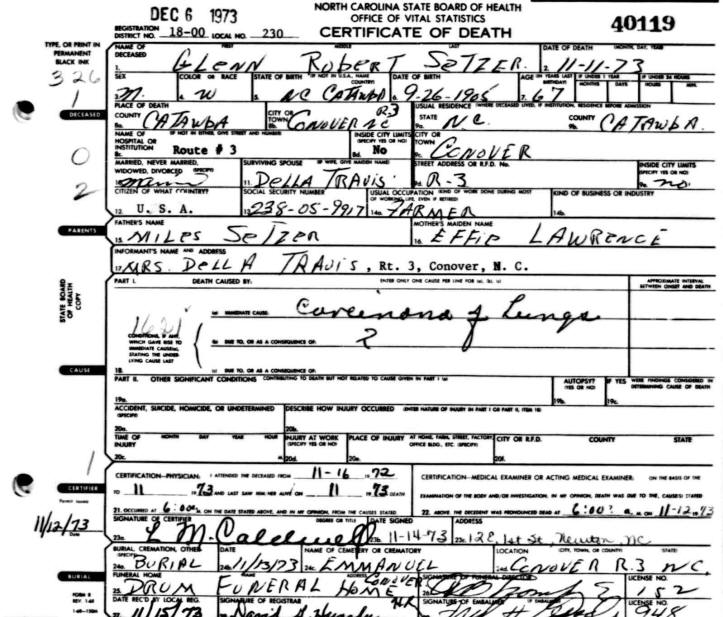 DEC 6 1973
NORTH CAROLINA STATE BOARD OF HEALTH
OFFICE OF VITAL STATISTICS
REGISTRATION DISTRICT NO. 18-00 LOCAL NO. 230 CERTIFICATE OF DEATH 40119
TYPE, OR PRINT IN PERMANENT BLACK INK
326
1
DECEASED
0
2
NAME OF DECEASED FIRST MIDDLE LAST DATE OF DEATH (MONTH, DAY, YEAR)
1. GLENN ROBERT SETZER 2. 11-11-73
SEX COLOR OR RACE STATE OF BIRTH (IF NOT IN U.S.A., NAME COUNTRY) DATE OF BIRTH AGE (IN YEARS LAST BIRTHDAY) IF UNDER 1 YEAR MONTHS DAYS IF UNDER 24 HOURS HOURS MIN.
3. M. 4. W 5. NC CATAWBA 6. 9-26-1905 7. 67
PLACE OF DEATH USUAL RESIDENCE (WHERE DECEASED LIVED, IF INSTITUTION, RESIDENCE BEFORE ADMISSION)
COUNTY 8a. CATAWBA CITY OR TOWN 8b. CONOVER NC R-3 STATE 9a. N.C. COUNTY 9b. CATAWBA.
NAME OF HOSPITAL OR INSTITUTION (IF NOT IN EITHER, GIVE STREET AND NUMBER) 8c. Route # 3 INSIDE CITY LIMITS (SPECIFY YES OR NO) 8d. No CITY OR TOWN 9c. CONOVER
MARRIED, NEVER MARRIED, WIDOWED, DIVORCED (SPECIFY) SURVIVING SPOUSE (IF WIFE, GIVE MAIDEN NAME) STREET ADDRESS OR R.F.D. No. INSIDE CITY LIMITS (SPECIFY YES OR NO)
10. 11. DELLA TRAVIS 9d. R-3 9e. no
CITIZEN OF WHAT COUNTRY? SOCIAL SECURITY NUMBER USUAL OCCUPATION (KIND OF WORK DONE DURING MOST OF WORKING LIFE, EVEN IF RETIRED) KIND OF BUSINESS OR INDUSTRY
12. U. S. A. 13. 238-05-9917 14a. FARMER 14b.
PARENTS
FATHER'S NAME MOTHER'S MAIDEN NAME
15. MILES SETZER 16. EFFIE LAWRENCE
INFORMANT'S NAME AND ADDRESS
17. MRS. DELLA TRAVIS, Rt. 3, Conover, N. C.
STATE BOARD OF HEALTH COPY
PART I. DEATH CAUSED BY: ENTER ONLY ONE CAUSE PER LINE FOR (a), (b), (c) APPROXIMATE INTERVAL BETWEEN ONSET AND DEATH
(a) IMMEDIATE CAUSE: Carcinoma of Lungs
1621
CONDITIONS, IF ANY, WHICH GAVE RISE TO IMMEDIATE CAUSE(a), STATING THE UNDERLYING CAUSE LAST
(b) DUE TO, OR AS A CONSEQUENCE OF: 2
18. (c) DUE TO, OR AS A CONSEQUENCE OF:
CAUSE
PART II. OTHER SIGNIFICANT CONDITIONS CONTRIBUTING TO DEATH BUT NOT RELATED TO CAUSE GIVEN IN PART I (a) AUTOPSY? (YES OR NO) IF YES WERE FINDINGS CONSIDERED IN DETERMINING CAUSE OF DEATH
19a. 19b. 19c.
ACCIDENT, SUICIDE, HOMICIDE, OR UNDETERMINED (SPECIFY) DESCRIBE HOW INJURY OCCURRED (ENTER NATURE OF INJURY IN PART I OR PART II, ITEM 18)
20a. 20b.
TIME OF INJURY MONTH DAY YEAR HOUR INJURY AT WORK (SPECIFY YES OR NO) PLACE OF INJURY AT HOME, FARM, STREET, FACTORY, OFFICE BLDG., ETC. (SPECIFY) CITY OR R.F.D. COUNTY STATE
20c. 20d. 20e. 20f.
1
CERTIFIER
CERTIFICATION—PHYSICIAN: I ATTENDED THE DECEASED FROM 11-16 1972 CERTIFICATION—MEDICAL EXAMINER OR ACTING MEDICAL EXAMINER: ON THE BASIS OF THE
TO 11 1973 AND LAST SAW HIM/HER ALIVE ON 11 1973 DEATH EXAMINATION OF THE BODY AND/OR INVESTIGATION, IN MY OPINION, DEATH WAS DUE TO THE, CAUSE(S) STATED
21. OCCURRED AT 6:00a. ON THE DATE STATED ABOVE, AND IN MY OPINION, FROM THE CAUSES STATED 22. ABOVE. THE DECEDENT WAS PRONOUNCED DEAD AT 6:00 a. M ON 11-12 1973
11/12/73
Date
SIGNATURE OF CERTIFIER DEGREE OR TITLE DATE SIGNED ADDRESS
23a. L M. Caldwell 23b. 11-14-73 23c. 12 E, 1st St., Newton, NC
BURIAL, CREMATION, OTHER (SPECIFY) DATE NAME OF CEMETERY OR CREMATORY LOCATION (CITY, TOWN, OR COUNTY) STATE
24a. BURIAL 24b. 11/13/73 24c. EMMANUEL 24d. CONOVER R.3 NC.
BURIAL
FUNERAL HOME NAME ADDRESS SIGNATURE OF FUNERAL DIRECTOR LICENSE NO.
25. DRUM FUNERAL HOME CONOVER 152
FORM 8
DATE REC'D BY LOCAL REG. SIGNATURE OF REGISTRAR SIGNATURE OF EMBALMER LICENSE NO.
27. 11/15/73 948